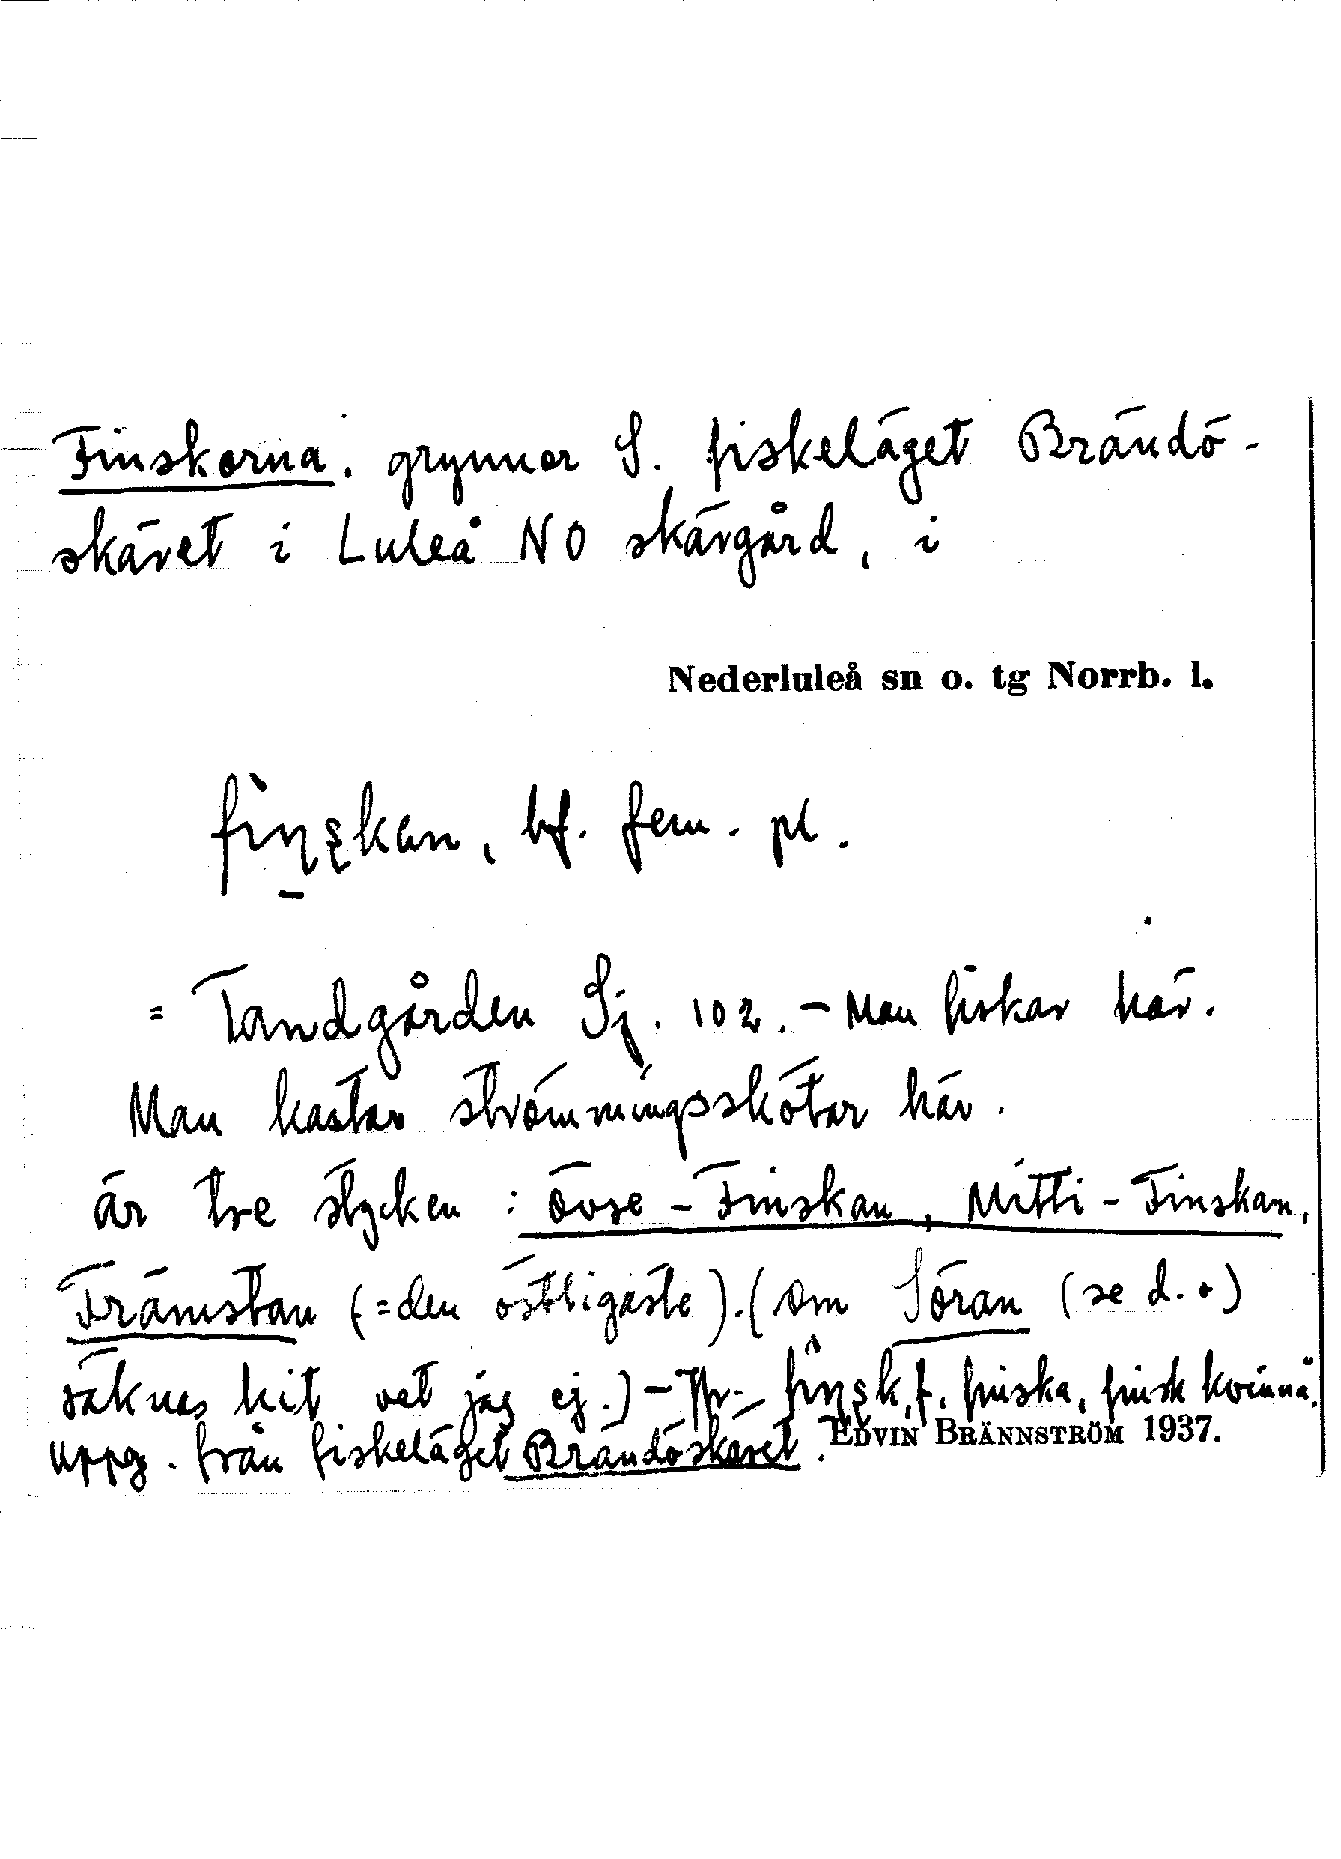 Finskorna. grynnor S. fiskeläget Brändö-
skäret i Luleå NO skärgård, i
Nederluleå sn o. tg Norrb. l.
bf. fem. pl.
= Tandgården Sj. 102. – Man fiskar här.
Man kastar strömmingsskötar här.
är tre stycken: Övse-Finskan, Mitti-Finskan,
Främstan (=den östligaste). (Om Söran (se d.o)
räknas hit vet jag ej.) – f. finska, finsk kvinna.
Uppg. från fiskeläget Brändöskäret.
EDVIN BRÄNNSTRÖM 1937.